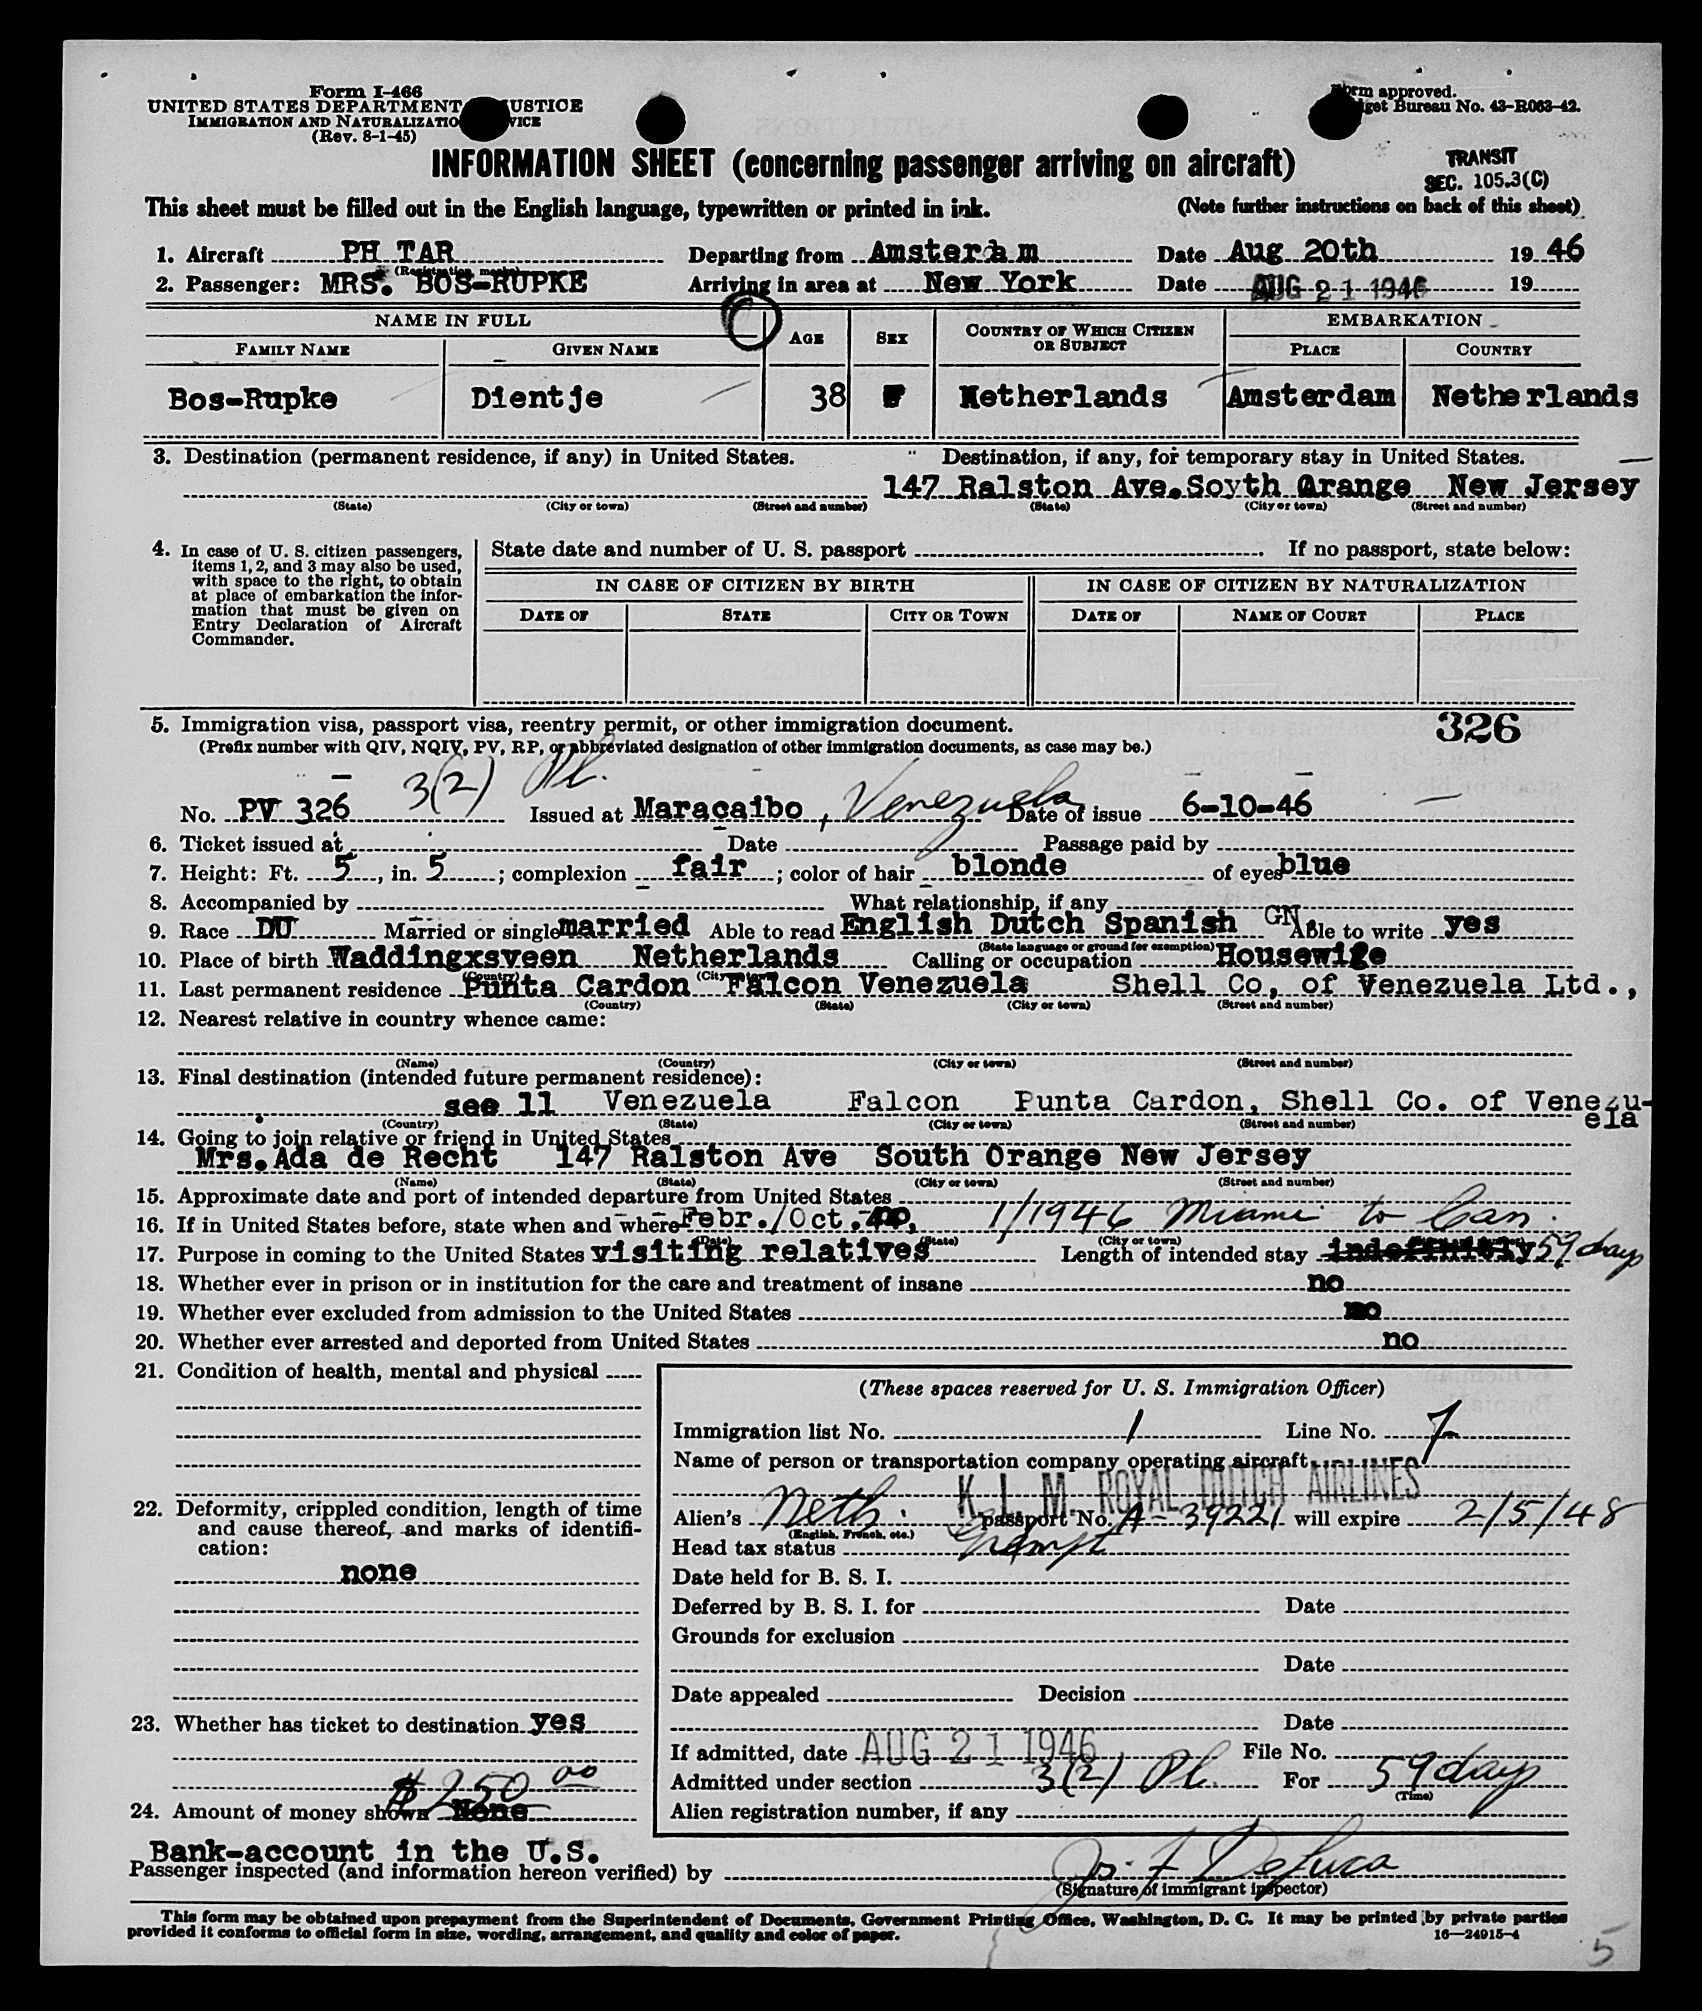 Form I-466
UNITED STATES DEPARTMENT JUSTICE
IMMIGRATION AND NATURALIZATION SERVICE
(Rev. 8-1-45)
Form approved.
Budget Bureau No. 43-R063-42.
INFORMATION SHEET (concerning passenger arriving on aircraft)
TRANSIT
SEC. 105.3(C)
This sheet must be filled out in the English language, typewritten or printed in ink. (Note further instructions on back of this sheet)
1. Aircraft PH TAR Departing from Amsterdam Date Aug 20th 19 46
(Registration marks)
2. Passenger: MRS. BOS-RUPKE Arriving in area at New York Date AUG 21 1946 19
NAME IN FULL AGE SEX COUNTRY OF WHICH CITIZEN OR SUBJECT EMBARKATION
FAMILY NAME GIVEN NAME PLACE COUNTRY
Bos-Rupke Dientje 38 F Netherlands Amsterdam Netherlands
3. Destination (permanent residence, if any) in United States. Destination, if any, for temporary stay in United States.
147 Ralston Ave.Soyth Orange New Jersey
(State) (City or town) (Street and number) (State) (City or town) (Street and number)
4. In case of U. S. citizen passengers, items 1, 2, and 3 may also be used, with space to the right, to obtain at place of embarkation the information that must be given on Entry Declaration of Aircraft Commander.
State date and number of U. S. passport . If no passport, state below:
IN CASE OF CITIZEN BY BIRTH IN CASE OF CITIZEN BY NATURALIZATION
DATE OF STATE CITY OR TOWN DATE OF NAME OF COURT PLACE
5. Immigration visa, passport visa, reentry permit, or other immigration document. 326
(Prefix number with QIV, NQIV, PV, RP, or abbreviated designation of other immigration documents, as case may be.)
3(2) Pl.
No. PV 326 Issued at Maracaibo, Venezuela Date of issue 6-10-46
6. Ticket issued at Date Passage paid by
7. Height: Ft. 5, in. 5; complexion fair; color of hair blonde of eyes blue
8. Accompanied by What relationship, if any
9. Race DU Married or single married Able to read English Dutch Spanish GN Able to write yes
(State language or ground for exemption)
10. Place of birth Waddingxsveen Netherlands Calling or occupation Housewife
(Country) (City or town)
11. Last permanent residence Punta Cardon Falcon Venezuela Shell Co, of Venezuela Ltd.,
(Country) (State) (City or town) (Street and number)
12. Nearest relative in country whence came:
(Name) (Country) (City or town) (Street and number)
13. Final destination (intended future permanent residence):
see 11 Venezuela Falcon Punta Cardon, Shell Co. of Venezu-
ela
(Country) (State) (City or town) (Street and number)
14. Going to join relative or friend in United States
Mrs. Ada de Recht 147 Ralston Ave South Orange New Jersey
(Name) (State) (City or town) (Street and number)
15. Approximate date and port of intended departure from United States
16. If in United States before, state when and where Febr./Oct. no, 1/1946 Miami to Can.
(Date) (State) (City or town)
17. Purpose in coming to the United States visiting relatives Length of intended stay indefinitly 59 days
18. Whether ever in prison or in institution for the care and treatment of insane no
19. Whether ever excluded from admission to the United States no
20. Whether ever arrested and deported from United States no
21. Condition of health, mental and physical
(These spaces reserved for U. S. Immigration Officer)
Immigration list No. 1 Line No. 7
Name of person or transportation company operating aircraft
K. L. M. ROYAL DUTCH AIRLINES
22. Deformity, crippled condition, length of time and cause thereof, and marks of identification:
none
Alien's Neth. passport No. A-39221 will expire 2/5/48
(English, French, etc.)
Head tax status Exempt
Date held for B. S. I.
Deferred by B. S. I. for Date
Grounds for exclusion
Date
Date appealed Decision
23. Whether has ticket to destination yes
Date
If admitted, date AUG 21 1946 File No.
Admitted under section 3(2) Pl. For 59 days
(Time)
$250.00
24. Amount of money shown None
Alien registration number, if any
Bank-account in the U.S.
Passenger inspected (and information hereon verified) by Jos. F. DeLuca
(Signature of immigrant inspector)
This form may be obtained upon prepayment from the Superintendent of Documents, Government Printing Office, Washington, D. C. It may be printed by private parties
provided it conforms to official form in size, wording, arrangement, and quality and color of paper. 16—24915-4
5